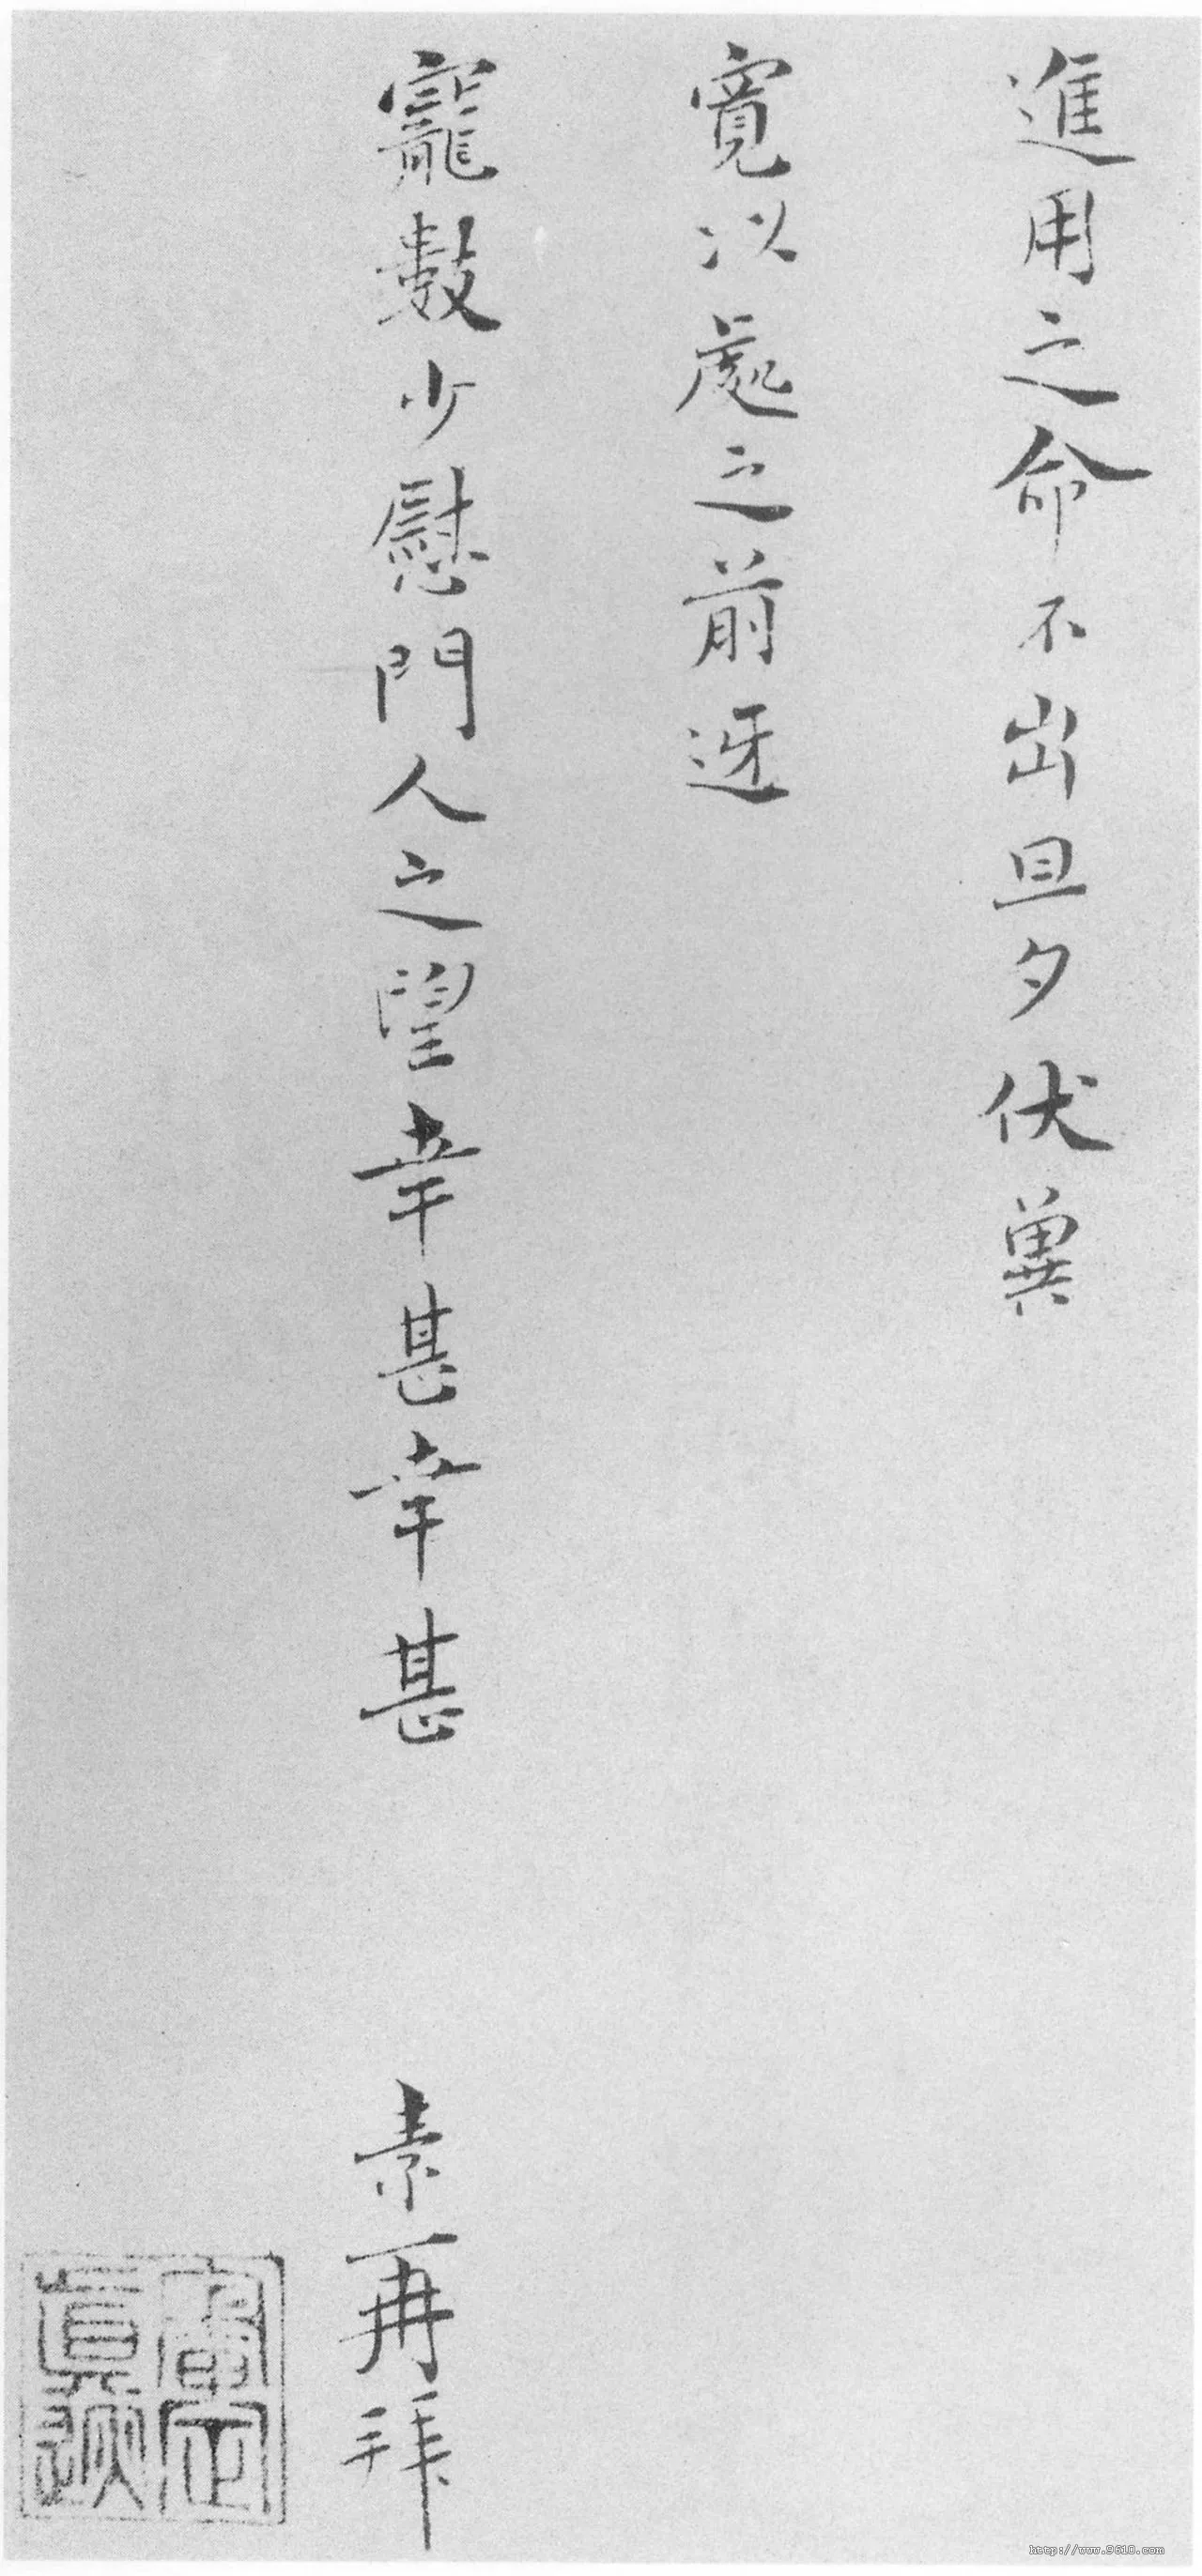 進用之命不出旦夕伏冀
寬以處之前迓
寵數少慰門人之望幸甚幸甚
素再拜
審定真跡
http://www.9610.com